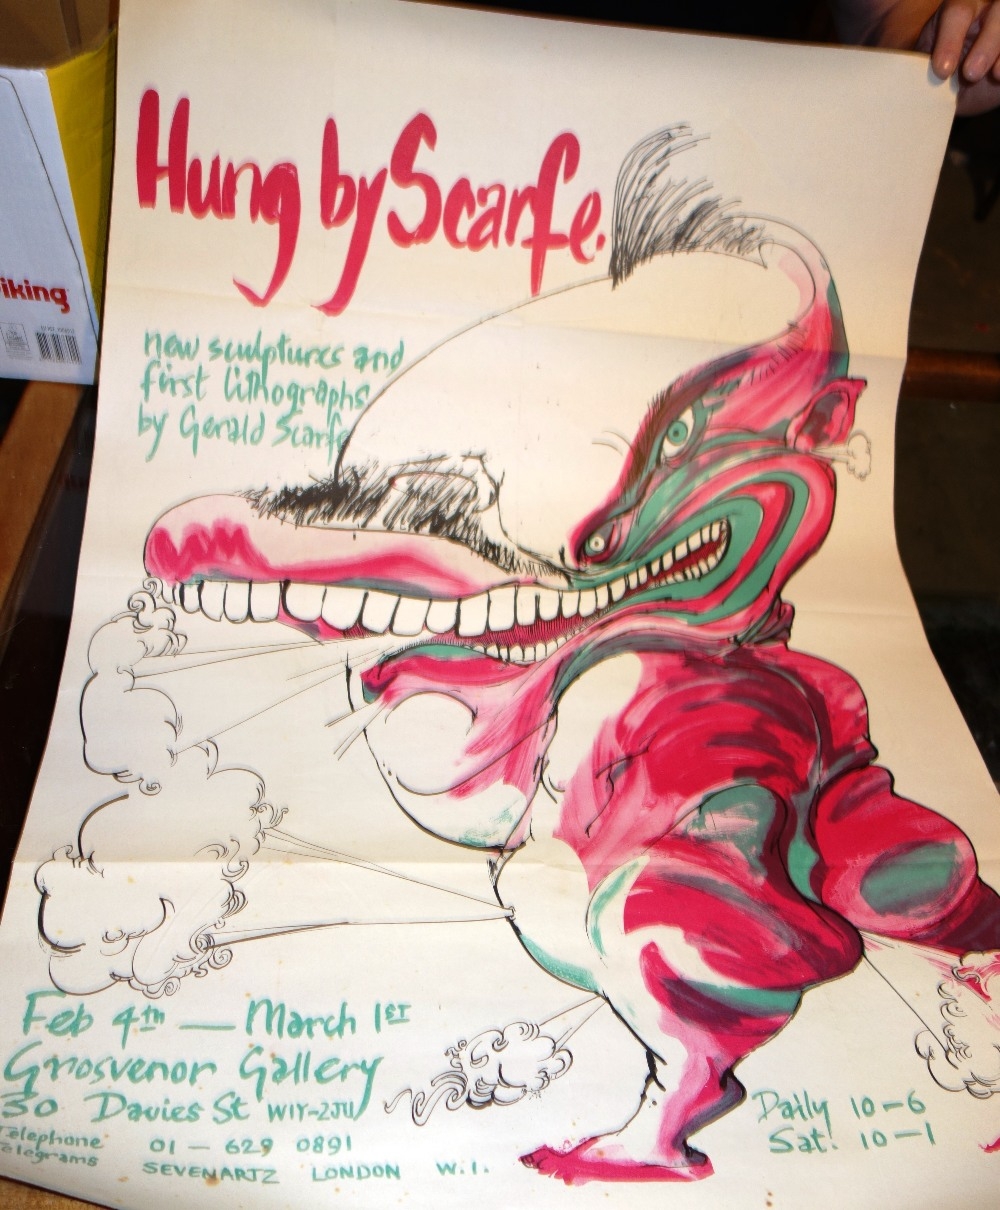 Hung by Scarfe.
new sculptures and
first lithographs
by Gerald Scarfe
iking
Feb 4th — March 1st
Grosvenor Gallery
30 Davies St W1Y-2JU
Telephone 01 — 629 0891
Telegrams SEVENARTZ LONDON W.1.
Daily 10–6
Sat. 10–1